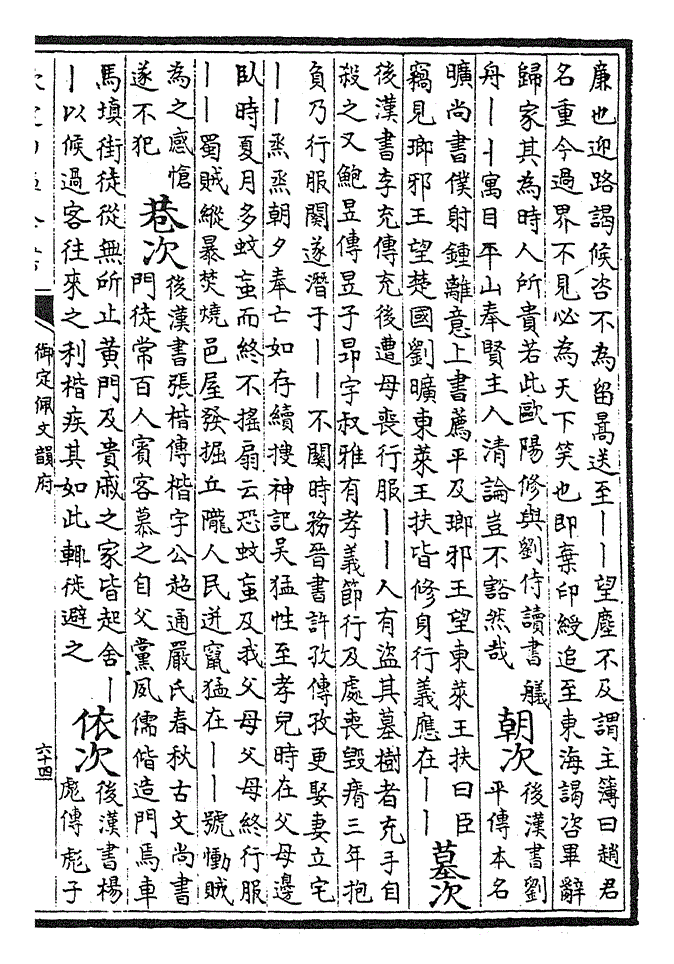 廉也迎路謁候咨不為留暠送至｜｜望塵不及謂主簿曰趙君
名重今過界不見必為天下笑也即棄印綬追至東海謁咨畢辭
歸家其為時人所貴若此歐陽修與劉侍讀書艤
舟｜｜寓目平山奉賢主人清論豈不豁然哉
朝次
後漢書劉
平傳本名
曠尚書僕射鍾離意上書薦平及瑯邪王望東萊王扶曰臣
竊見瑯邪王望楚國劉曠東萊王扶皆修身行義應在｜｜
墓次
後漢書李充傳充後遭母喪行服｜｜人有盜其墓樹者充手自
殺之又鮑昱傳昱子昂字叔雅有孝義節行及處喪毀瘠三年抱
負乃行服闋遂潛于｜｜不關時務晉書許孜傳孜更娶妻立宅
｜｜烝烝朝夕奉亡如存續搜神記吳猛性至孝兒時在父母邊
臥時夏月多蚊䖟而終不搖扇云恐蚊䖟及我父母父母終行服
｜｜蜀賊縱暴焚燒邑屋發掘丘隴人民迸竄猛在｜｜號慟賊
為之感愴
遂不犯
巷次
後漢書張楷傳楷字公超通嚴氏春秋古文尚書
門徒常百人賓客慕之自父黨夙儒偕造門焉車
馬填街徒從無所止黃門及貴戚之家皆起舍｜
｜以候過客往來之利楷疾其如此輒徙避之
依次
後漢書楊
彪傳彪子
御定佩文韻府
六十四